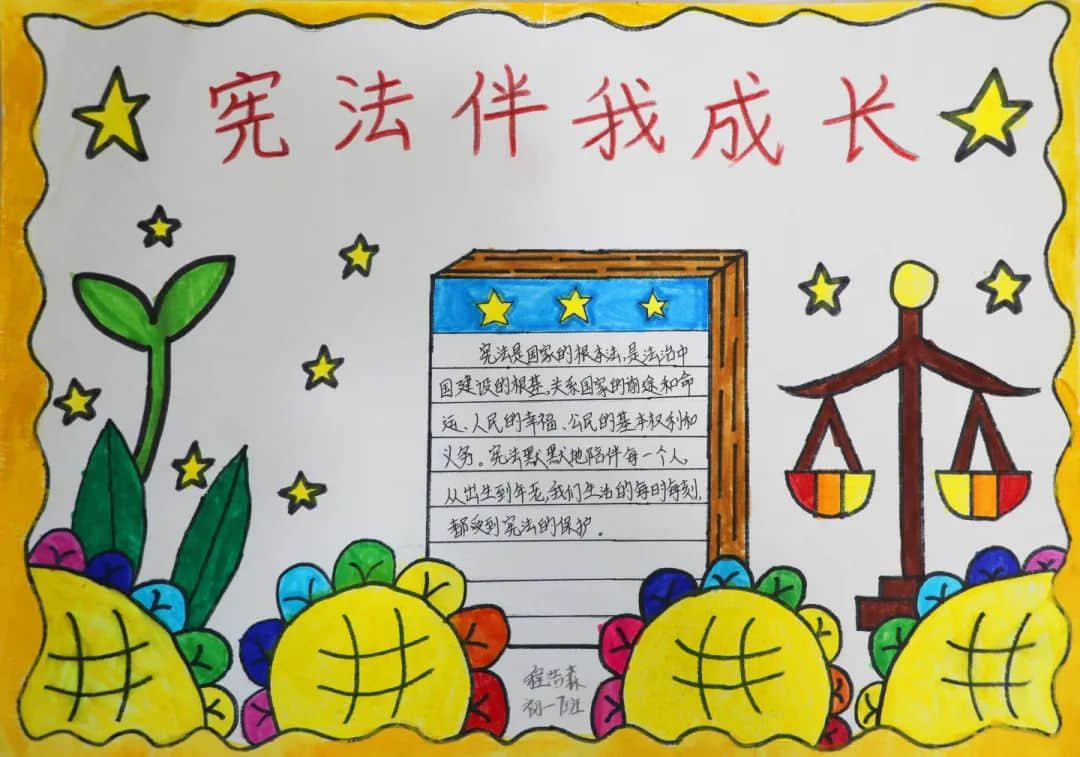 宪法伴我成长
宪法是国家的根本法,是法治中
国建设的根基,关系国家的前途和命
运、人民的幸福、公民的基本权利和
义务。宪法默默地陪伴每一个人
从出生到年老,我们生活的每时每刻,
都受到宪法的保护。
程浩森
初一7班